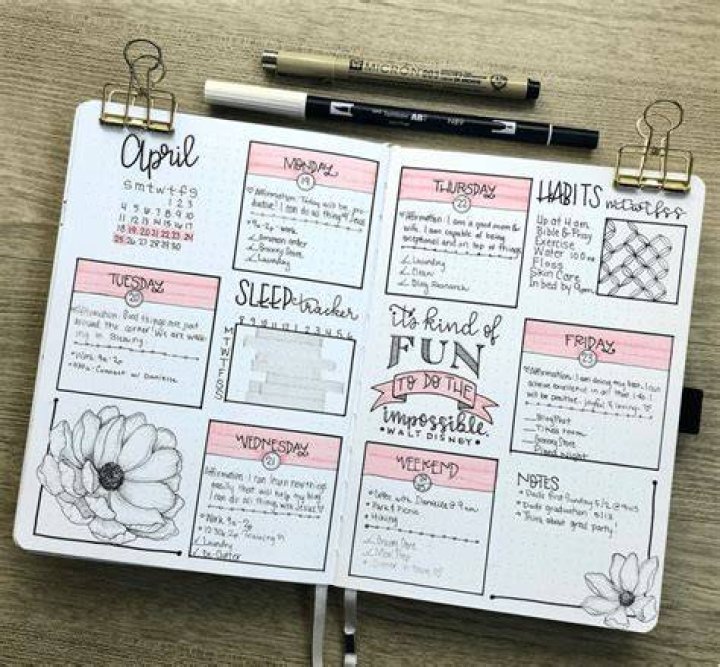 MICRON 005
ABT N89
April
s m t w t f s
1 2 3
4 5 6 7 8 9 10
11 12 13 14 15 16 17
18 19 20 21 22 23 24
25 26 27 28 29 30
MONDAY
19
Affirmation: Today will be pro-
ductive! I can do all things
Work
Grocery Store
Laundry
TUESDAY
20
Affirmation: Good things are just
around the corner! We are walk-
ing in Blessing
Work 9a-2p
Connect w/ Danielle
SLEEP tracker
8 9 10 11 12 1 2 3 4 5 6
M
T
W
T
F
S
S
WEDNESDAY
21
Affirmation: I can learn new things
easily, that will help my blog
I can do all things with Jesus!
Work 9a-2p
12:30p Training
Laundry
De-Clutter
THURSDAY
22
Affirmation: I am a good mom &
wife. I am capable of being
exceptional and on top of things
Laundry
Clean
Blog Research
HABITS
m t w t f s s
Up at 4am
Bible & Pray
Exercise
Water 100oz
Floss
Skin Care
In bed by 9pm
it's kind of
FUN
TO DO THE
impossible
WALT DISNEY
FRIDAY
23
Affirmation: I am doing my best. I can
achieve excellence in all that I do. I
will be positive, joyful & loving.
Grocery Store
WEEKEND
24
25
with Danielle @ 9am
Park & Picnic
Hiking
NOTES
Dad's graduation
Think about grad party!